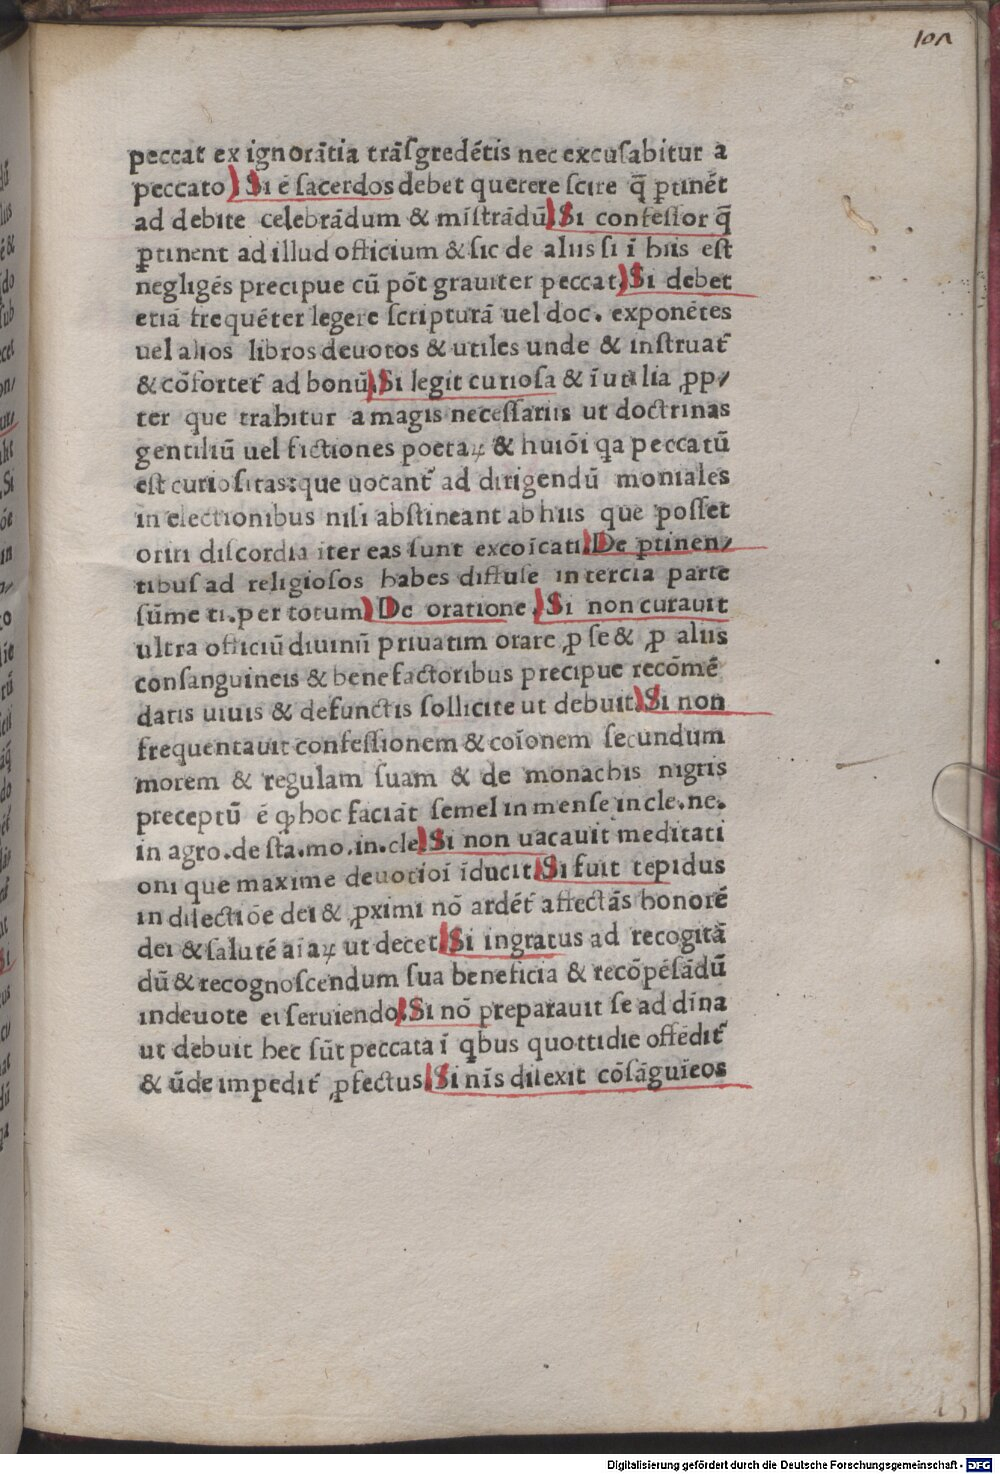 101
peccat ex ignorãtia trãſgredẽtis nec excuſabitur a
peccato Si ẽ ſacerdos debet querere ſcire q̃ ꝑtinẽt
ad debite celebrãdum & miſtrãdũ. Si confeſſor q̃
ꝑtinent ad illud officium & ſic de aliis ſi ĩ hiis eſt
negligẽs precipue cũ põt grauiter peccat. Si debet
etiã frequẽter legere ſcripturã uel doc. exponẽtes
uel alios libros deuotos & utiles unde & inſtruat᷑
& cõfortet᷑ ad bonũ. Si legit curioſa & ĩutilia ꝓp/
ter que trahitur a magis neceſſariis ut doctrinas
gentiliũ uel fictiones poetaꝝ & huiõi qa peccatũ
eſt curioſitas:que uocant᷑ ad dirigendũ moniales
in electionibus niſi abſtineant ab hiis que poſſet
oriri diſcordia iter eas ſunt excoicati. De ꝑtinen/
tibuſ ad religioſos habes diffuſe in tercia parte
ſũme ti. per totum De oratione. Si non curauit
ultra officiũ diuinũ priuatim orare ꝓ ſe & ꝓ aliis
conſanguineis & benefactoribus precipue recõmẽ
datis uiuis & defunctis ſollicite ut debuit. Si non
frequentauit confeſſionem & coĩonem ſecundum
morem & regulam ſuam & de monachis nigris
preceptũ ẽ ꝙ hoc faciãt ſemel in menſe in cle. ne.
in agro. de ſta. mo. in. cle. Si non uacauit meditati
oni que maxime deuotioĩ ĩducit. Si fuit tepidus
in dilectiõe dei & ꝓximi nõ ardẽt᷑ affectãs honorẽ
dei & ſalutẽ aiaꝝ ut decet. Si ingratus ad recogitã
dũ & recognoſcendum ſua beneficia & recõpẽſãdũ
indeuote ei ſeruiendo. Si nõ preparauit ſe ad dĩna
ut debuit hec ſũt peccata ĩ qbus quottidie offẽdit᷑
& ũde impedit᷑ ꝓfectus. Si nĩs dilexit cõſãguĩeos
Digitalisierung gefördert durch die Deutsche Forschungsgemeinschaft - DFG